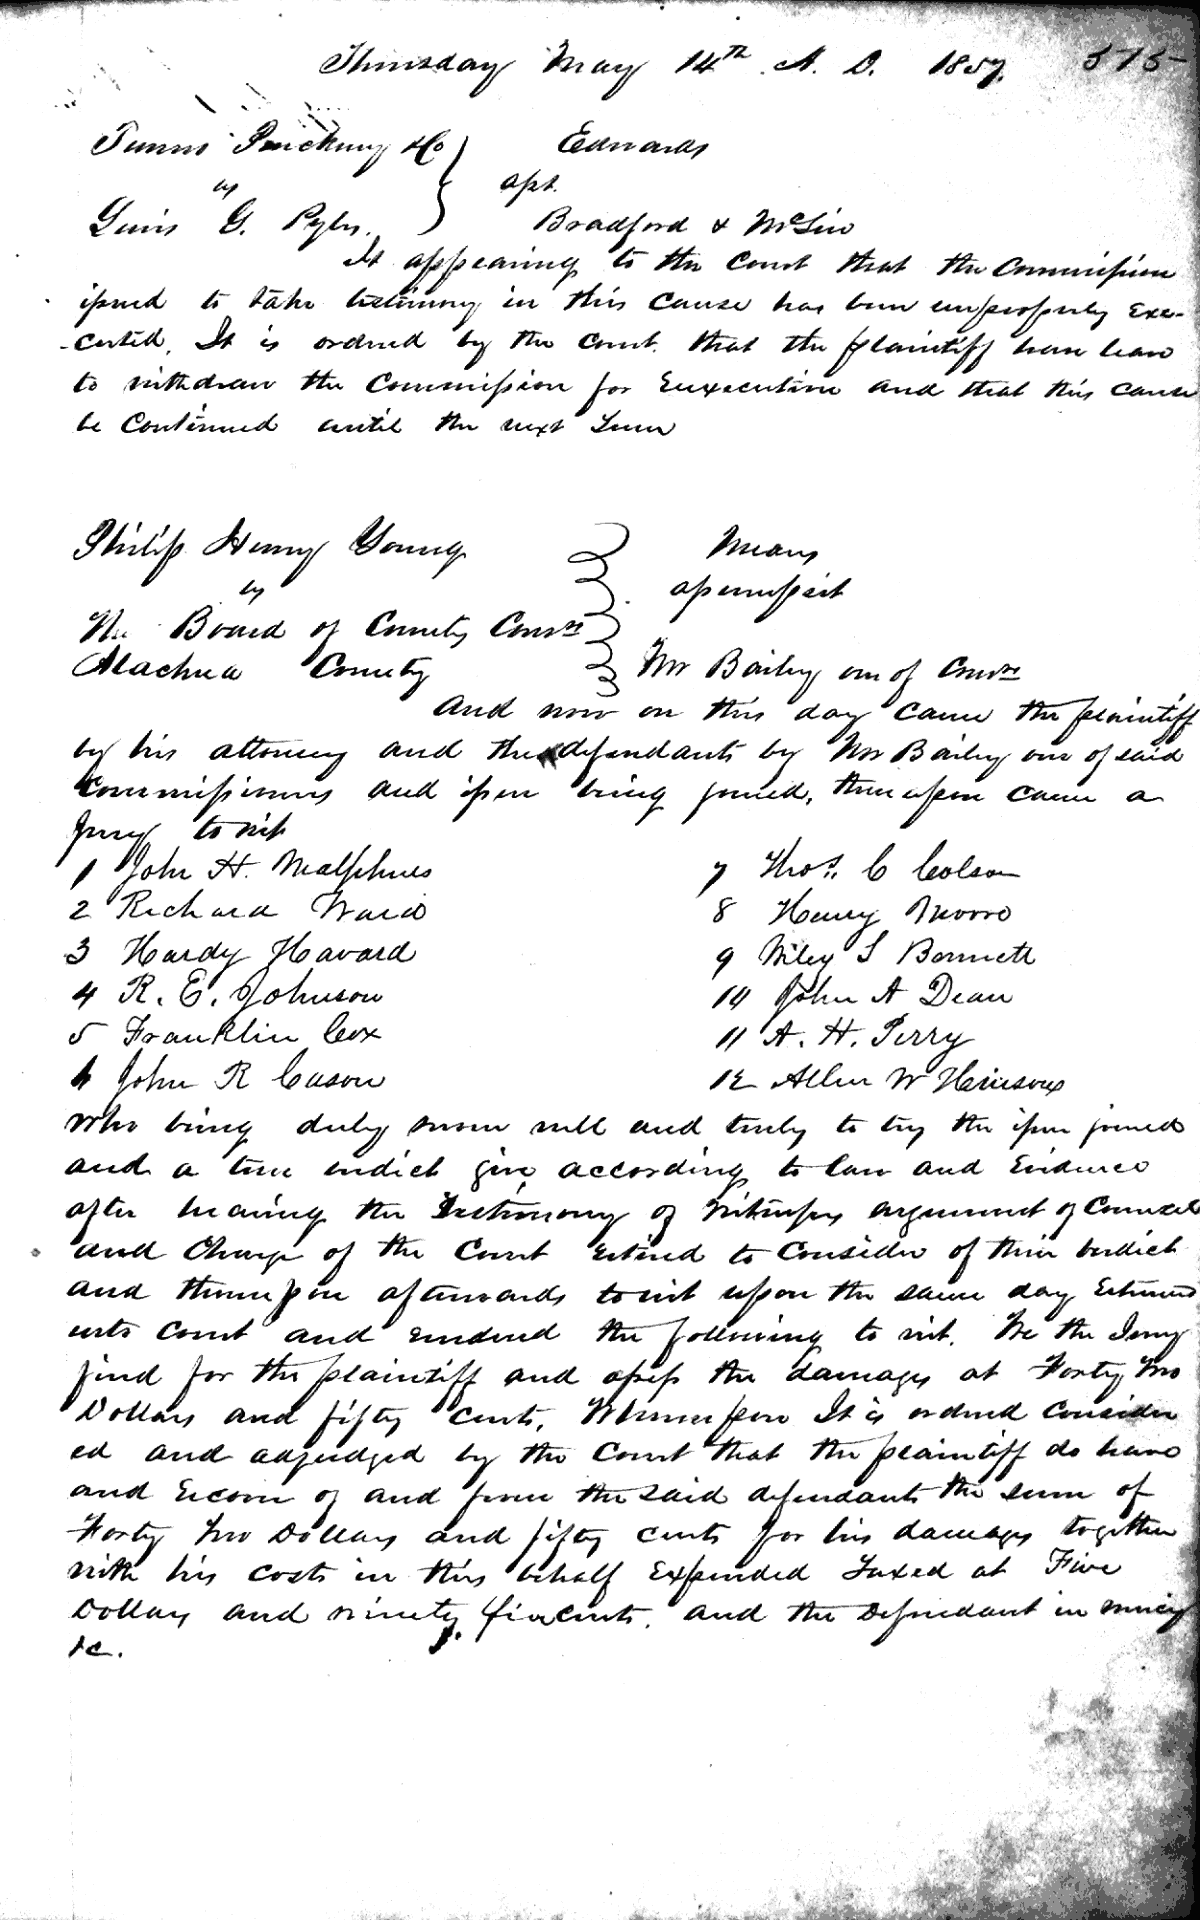 Thursday May 14th A. D. 1857. 575
Tunno Pinckney & Co Edwards
vs apt.
Lewis G. Pyles. Bradford & McLin
It appearing to the Court that the Commission
issued to take testimony in this cause has been improperly exe-
-cuted. It is ordered by the Court. that the plaintiff have leave
to withdraw the Commission for Reexecution and that this cause
be continued until the next Term
Philip Henry Young Means
vs assumpsit
The Board of County Comrs
Alachua County Mr Bailey one of Comrs
And now on this day came the plaintiff
by his attorney and the defendants by Mr Bailey one of said
Commissioners and issue being joined, thereupon came a
Jury to wit
1 John H. Malphurs 7 Thos. C Colson
2 Richard Ward 8 Henry Moore
3 Hardy Havard 9 Wiley S Bennett
4 R. E. Johnson 10 John A Dean
5 Franklin Cox 11 A. H. Perry
6 John R Cason 12 Allen W Hinsons
Who being duly sworn well and truly to try the issue joined
and a true verdict give according to law and Evidence
after hearing the Testimony of Witnesses argument of Counsel
and Charge of the Court retired to consider of their verdict
and thereupon afterwards to wit upon the same day returned
into Court and rendered the following to wit. We the Jury
find for the plaintiff and assess the damages at Forty two
Dollars and fifty cents. Whereupon It is ordered consider
ed and adjudged by the Court that the plaintiff do have
and recover of and from the said defendants the sum of
Forty two Dollars and fifty cents for his damages together
with his costs in this behalf Expended Taxed at Five
Dollars and ninety five cents. and the Defendant in mercy
&c.